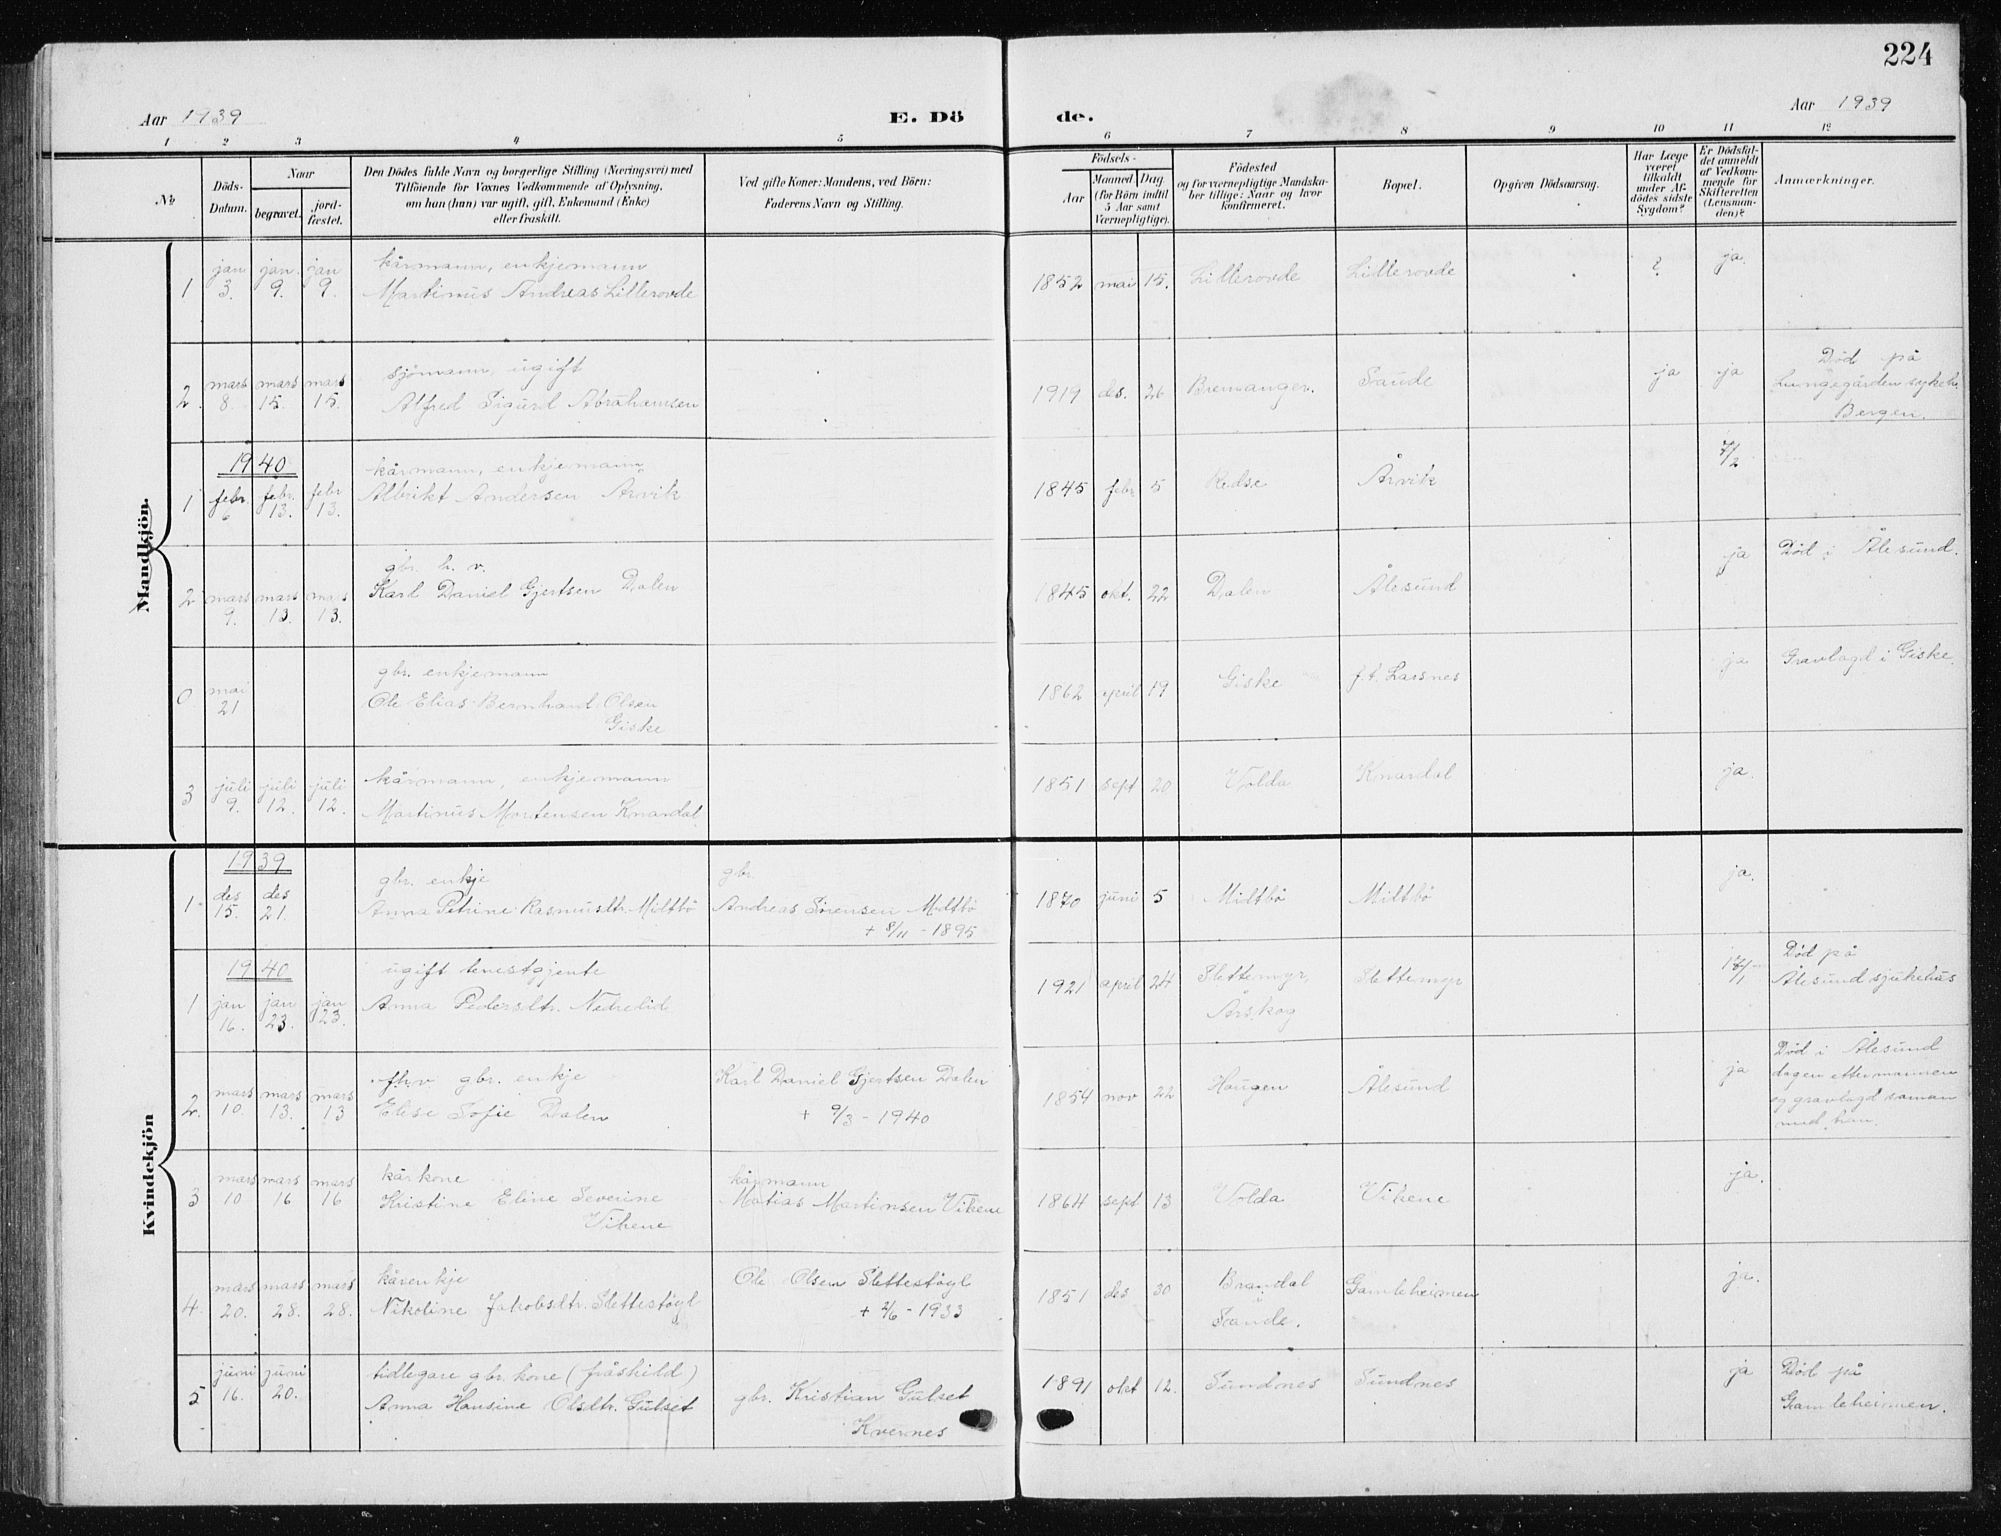 224
Aar 1939
E. Dö
de.
Aar 1939
1 2 3 4 5 6 7 8 9 10 11 12
No
Döds-
Datum.
Naar
begravet.
jord-
fæstet.
Den Dödes fulde Navn og borgerlige Stilling (Næringsvei) med
Tilföiende for Voxnes Vedkommende af Oplysning,
om han (hun) var ugift, gift, Enkemand (Enke)
eller fraskilt.
Ved gifte Koner: Mandens, ved Börn:
Faderens Navn og Stilling.
Födsels-
Aar
Maaned
Dag
(for Börn indtil
5 Aar samt
Værnepligtige).
Födested
og for værnepligtige Mandska-
ber tillige: Naar og hvor
konfirmeret.
Bopæl.
Opgiven Dödsaarsag.
Har Læge
været
tilkaldt
under Af-
dödes sidste
Sygdom?
Er Dödsfal-
det anmeldt
af Vedkom-
mende for
Skifteretten
(Lensman-
den)?
Anmærkninger.
Mandkjön.
1 jan 3. jan. 9. jan 9. kårmann, enkjemann
Martinus Andreas Lillerovde 1852 mai 15. Lillerovde Lillerovde ? ja.
2. mars 8. mars 15. mars 15. sjömann, ugift
Alfred Sigurd Abrahamsen 1919 des. 26 Bremanger. Sande ja ja Död på
Lungegården sykeh.
Bergen.
1940
1 febr. 6 febr. 13. febr 13. kårmann, enkjemann
Albrikt Andersen Årvik 1845 febr 5 Årvik 7/2
2 mars 9. mars 13. mars 13. gbr. h. v.
Karl Daniel Gjertsen Dalen 1845 okt. 22 Dalen Ålesund ja Död i Ålesund.
0 mai 21 gbr. enkjemann
Ole Elias Bernhard Olsen
Giske 1862 april 19 Giske f.t. Larsnes ja Gravlagd i Giske.
3 juli 9. juli 12. juli 12. kårmann, enkjemann
Martinus Mortensen Knardal 1851 sept 20 Volda Knardal ja.
Kvindekjön
1939
1 des 15. des 21. gbr. enkje
Anna Petrine Rasmusdtr. Midtbö gbr.
Andreas Sörensen Midtbö
+ 8/11 - 1895 1870 juni 5 Midtbö Midtbö ja.
1940
1 jan 16. jan 23. jan 23. ugift tenestgjente
Anna Pedersdtr. Nedrelid 1921 april 24 Slettemyr,
Årskog Slettemyr Död på
Ålesund sjukehus
2. mars 10. mars 13. mars 13 fhv gbr. enkje
Elise Sofie Dalen Karl Daniel Gjertsen Dalen
+ 9/3 - 1940 1854 nov 22 Haugen Ålesund ja Död i Ålesund
dagen etter mannen
og gravlagd saman
med han.
3 mars 10 mars 16 mars 16 kårkone
Kristine Eline Severine
Vikene kårmann
Matias Martinsen Vikene 1864 sept 13 Volda Vikene ja.
4. mars 20. mars 28. mars 28. kårenkje
Nikoline Jakobsdtr. Slettestöyl Ole Olsen Slettestöyl
+ 2/6 - 1933 1851 des 30 Brandal
i
Sande. Gamleheimen ja.
5 juni 16. juni 20. tidlegare gbr. kone (fråskild)
Anna Hansine Olsdtr. Gulset gbr. Kristian Gulset
Kvernes 1891 okt 12. Sundnes Sundnes ja Död på
Gamleheimen.